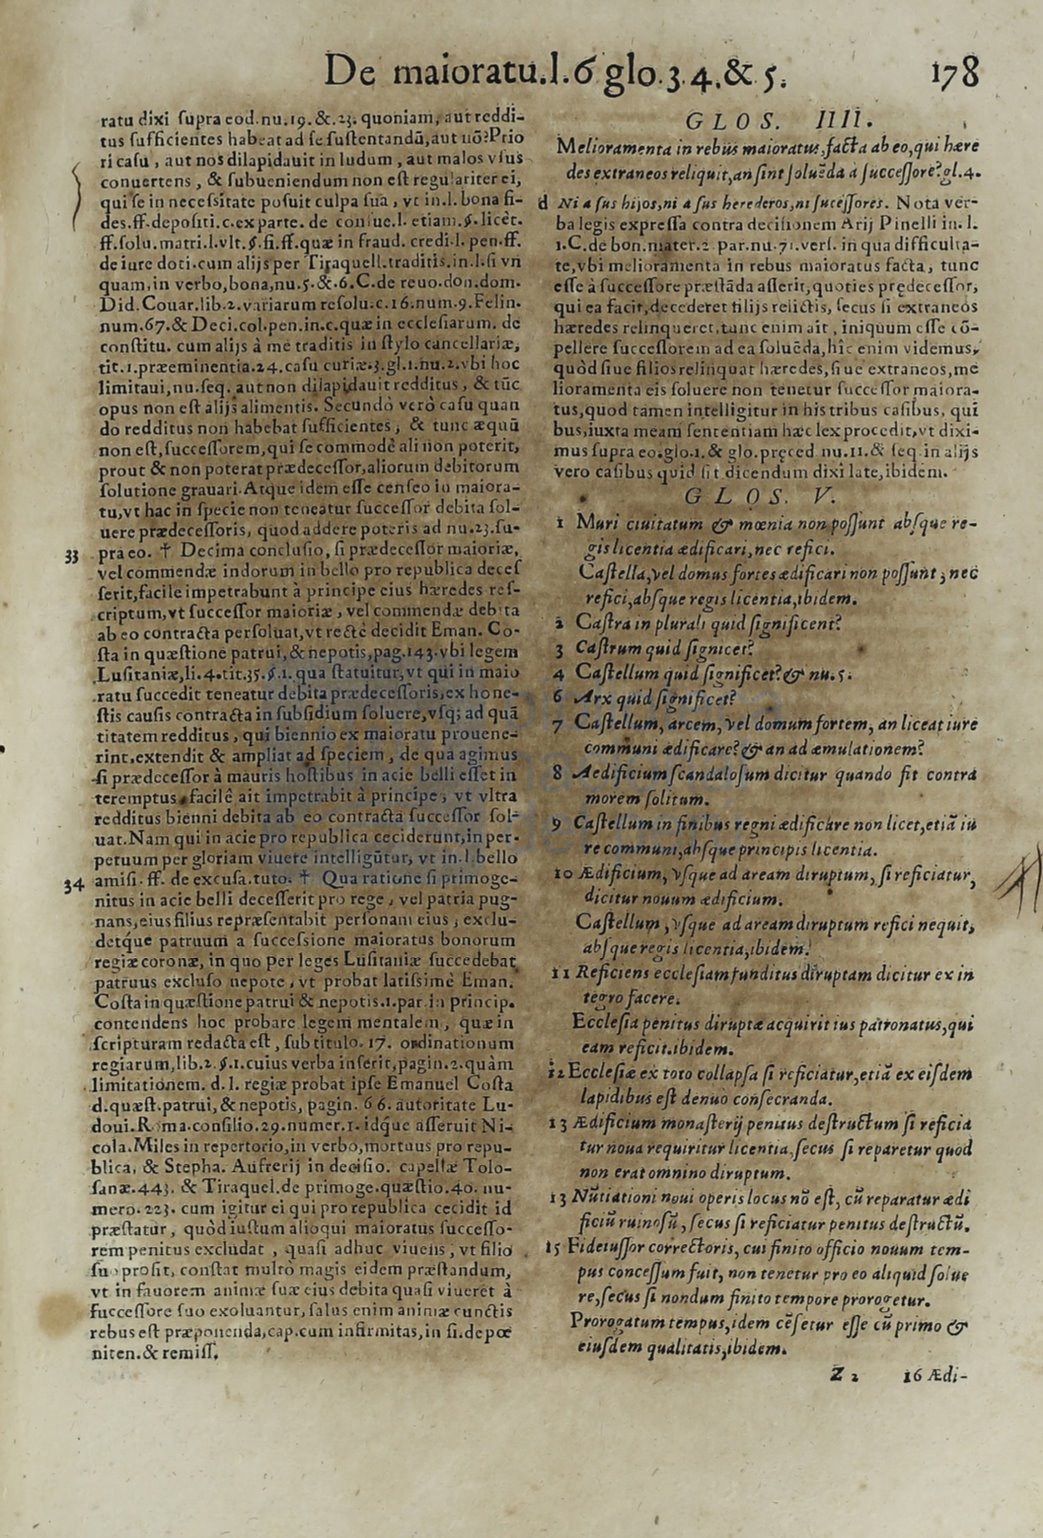 De maioratu.l.6 glo.3.4.& 5. 178
ratu dixi ſupra eod.nu.19.&.23. quoniam, aut reddi-
tus ſufficientes habeat ad ſe ſuſtentandũ, aut nõ? Prio
ri caſu, aut nos dilapidauit in ludum, aut malos vſus
conuertens, & ſubueniendum non eſt regulariter ei,
qui ſe in neceſsitate poſuit culpa ſua, vt in.l.bona fi-
des.ff.depoſiti.c.ex parte. de conſue.l. etiam.§.licèt.
ff.ſolu.matri.l.vlt.§.fi.ff.quæ in fraud. credi.l. pen.ff.
de iure doti.cum alijs per Tiraquell.traditis.in.l.ſi vn
quam,in verbo,bona,nu.5.&.6.C.de reuo.don.dom.
Did.Couar.lib.2.variarum reſolu.c.16.num.9.Felin.
num.67.& Deci.col.pen.in.c.quæ in eccleſiarum. de
conſtitu. cum alijs à me traditis in ſtylo cancellariæ,
tit.1.præeminentia.24.caſu curiæ.3.gl.1.nu.2.vbi hoc
limitaui,nu.ſeq. aut non dilapidauit redditus, & tũc
opus non eſt alijs alimentis. Secundò verò caſu quan
do redditus non habebat ſufficientes, & tunc æquũ
non eſt,ſucceſſorem,qui ſe commodè ali non poterit,
prout & non poterat prædeceſſor,aliorum debitorum
ſolutione grauari.Atque idem eſſe cenſeo in maiora-
tu,vt hac in ſpecie non teneatur ſucceſſor debita ſol-
uere prædeceſſoris, quod addere poteris ad nu.23.ſu-
33 pra eo. † Decima concluſio, ſi prædeceſſor maioriæ,
vel commendæ indorum in bello pro republica deceſ
ſerit,facile impetrabunt à principe eius hæredes reſ-
criptum,vt ſucceſſor maioriæ, vel commendæ debita
ab eo contracta perſoluat,vt rectè decidit Eman. Co-
ſta in quæſtione patrui,& nepotis,pag.143.vbi legem
Luſitaniæ,li.4.tit.35.§.1.qua ſtatuitur,vt qui in maio
ratu ſuccedit teneatur debita prædeceſſoris,ex hone-
ſtis cauſis contracta in ſubſidium ſoluere,vſq; ad quã
titatem redditus, qui biennio ex maioratu prouene-
rint,extendit & ampliat ad ſpeciem, de qua agimus
ſi prædeceſſor à mauris hoſtibus in acie belli eſſet in
teremptus, facilè ait impetrabit à principe, vt vltra
redditus bienni debita ab eo contracta ſucceſſor ſol-
uat.Nam qui in acie pro republica ceciderunt,in per-
petuum per gloriam viuere intelligũtur, vt in.l.bello
34 amiſi.ff. de excuſa.tuto. † Qua ratione ſi primoge-
nitus in acie belli deceſſerit pro rege, vel patria pug-
nans,eius filius repræſentabit perſonam eius, exclu-
detque patruum a ſucceſsione maioratus bonorum
regiæ coronæ, in quo per leges Luſitaniæ ſuccedebat
patruus excluſo nepote, vt probat latiſsimè Eman.
Coſta in quæſtione patrui & nepotis.1.par.in princip.
contendens hoc probare legem mentalem, quæ in
ſcripturam redacta eſt, ſub titulo. 17. ordinationum
regiarum,lib.2.§.1.cuius verba inſerit,pagin.2.quàm
limitationem. d.l. regiæ probat ipſe Emanuel Coſta
d.quæſt.patrui,& nepotis, pagin. 66. autoritate Lu-
doui.Roma.conſilio.29.numer.1. idque aſſeruit Ni-
cola.Miles in repertorio,in verbo,mortuus pro repu-
blica, & Stepha. Aufrerij in deciſio. capellæ Tolo-
ſanæ.443. & Tiraquel.de primoge.quæſtio.40. nu-
mero.223. cum igitur ei qui pro republica cecidit id
præſtatur, quòd iuſtum alioqui maioratus ſucceſſo-
rem penitus excludat, quaſi adhuc viuens, vt filio
ſuo proſit, conſtat multò magis eidem præſtandum,
vt in fauorem animæ ſuæ eius debita quaſi viueret à
ſucceſſore ſuo exoluantur, ſalus enim animæ cunctis
rebus eſt præponenda,cap.cum infirmitas,in fi.de pœ
niten.& remiſſ.
GLOS. IIII.
Melioramenta in rebus maioratus,facta ab eo,qui hære
des extraneos reliquit,an ſint ſoluẽda à ſucceſſore? gl.4.
d Ni a ſus hijos,ni a ſus herederos,ni ſuceſſores. Nota ver-
ba legis expreſſa contra deciſionem Arij Pinelli in. l.
1.C.de bon.mater.2 par.nu.71.verſ. in qua difficulta-
te,vbi melioramenta in rebus maioratus facta, tunc
eſſe à ſucceſſore præſtãda aſſerit,quoties prędeceſſor,
qui ea facit,decederet filijs relictis, ſecus ſi extraneos
hæredes relinqueret,tunc enim ait, iniquum eſſe cõ-
pellere ſucceſſorem ad ea ſoluẽda,hîc enim videmus,
quòd ſiue filios relinquat hæredes,ſiue extraneos,me
lioramenta eis ſoluere non tenetur ſucceſſor maiora-
tus,quod tamen intelligitur in his tribus caſibus, qui
bus,iuxta meam ſententiam hæc lex procedit,vt dixi-
mus ſupra eo.glo.1.& glo.pręced nu.11.& ſeq.in alijs
vero caſibus quid ſit dicendum dixi late,ibidem.
GLOS. V.
1 Muri ciuitatum & mœnia non poſſunt abſque re-
gis licentia ædificari,nec refici.
Caſtella,vel domus fortes ædificari non poſſunt, nec
refici,abſque regis licentia,ibidem.
2 Caſtra in plurali quid ſignificent?
3 Caſtrum quid ſignicet?
4 Caſtellum quid ſignificet? & nu.5.
6 Arx quid ſignificet?
7 Caſtellum, arcem, vel domum fortem, an liceat iure
communi ædificare? & an ad æmulationem?
8 Aedificium ſcandaloſum dicitur quando fit contra
morem ſolitum.
9 Caſtellum in finibus regni ædificare non licet,etiã iu
re communi,abſque principis licentia.
10 Ædificium, vſque ad aream diruptum, ſi reficiatur,
dicitur nouum ædificium.
Caſtellum, vſque ad aream diruptum refici nequit,
abſque regis licentia,ibidem.
11 Reficiens eccleſiam funditus diruptam dicitur ex in
tegro facere.
Eccleſia penitus diruptæ acquirit ius patronatus,qui
eam reficit.ibidem.
12 Eccleſiæ ex toto collapſa ſi reficiatur,etiã ex eiſdem
lapidibus eſt denuò conſecranda.
13 Ædificium monaſterij penitus deſtructum ſi reficia
tur noua requiritur licentia,ſecus ſi reparetur quod
non erat omnino diruptum.
13 Nũtiationi noui operis locus nõ eſt, cũ reparatur ædi
ficiũ ruinoſũ, ſecus ſi reficiatur penitus deſtructũ.
15 Fideiuſſor correctoris, cui finito officio nouum tem-
pus conceſſum fuit, non tenetur pro eo aliquid ſolue
re,ſecus ſi nondum finito tempore prorogetur.
Prorogatum tempus,idem cẽſetur eſſe cũ primo &
eiuſdem qualitatis,ibidem.
Z 2 16 Ædi-